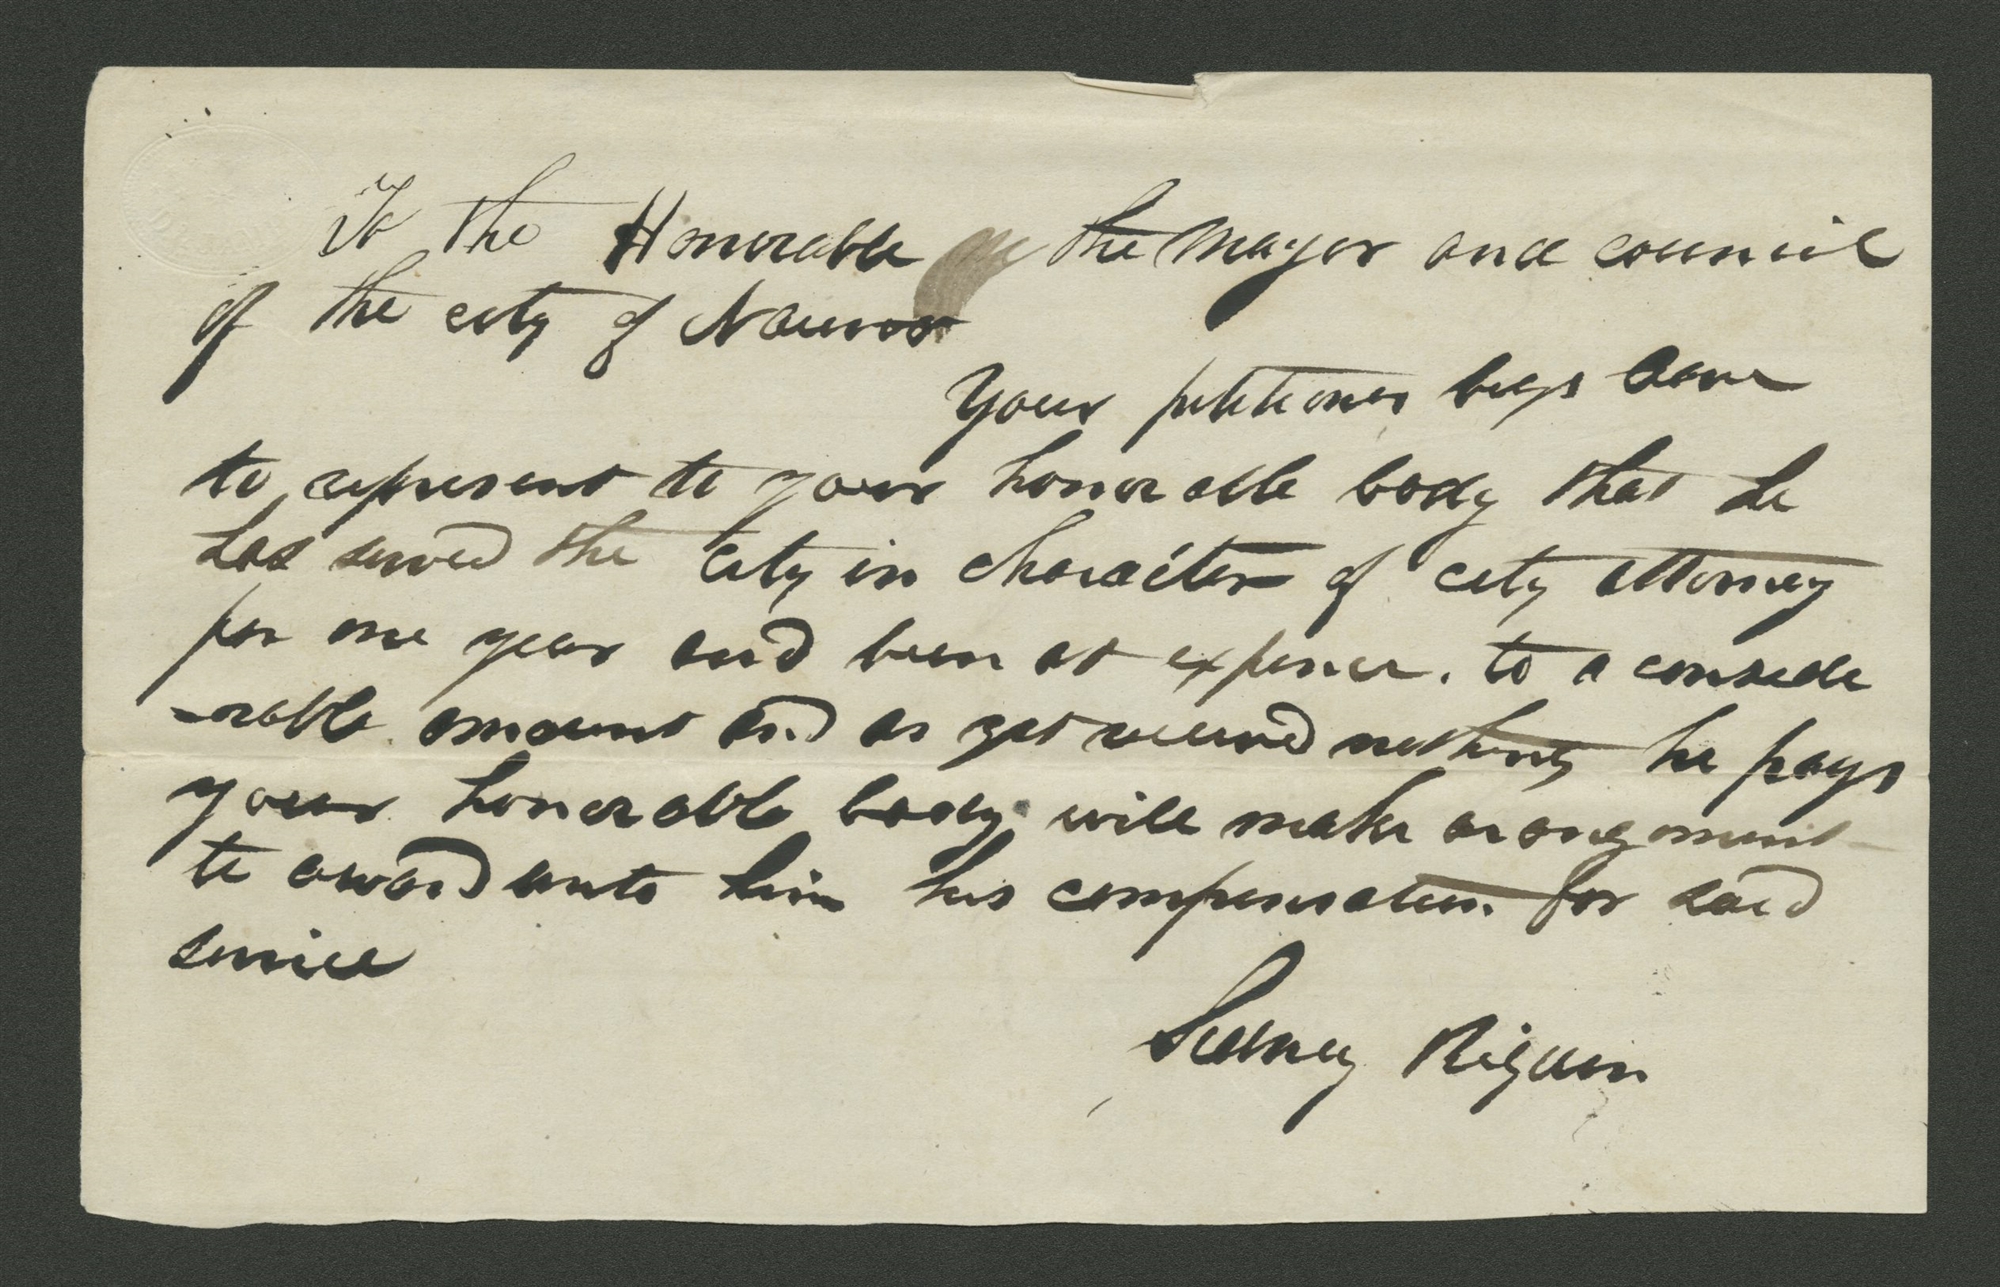 To the Honorable the Mayor and council
of the city of Nauvoo
Your petitioner begs leave
to represent to your honorable body that he
has served the city in character of city attorney
for one year and been at expence. to a conside
-rable amount and as yet received nothing he pays
your honorable body will make arangement
to award unto him his compensation for said
service
Sidney Rigdon